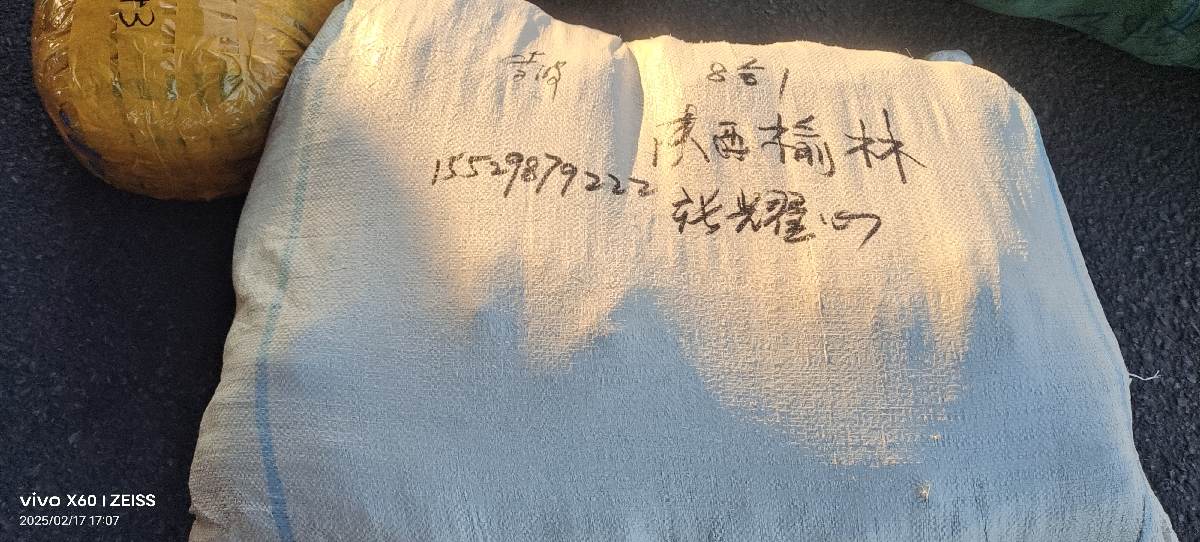 43
8合1
陕西榆林
15529879222
张耀心
vivo X60 | ZEISS
2025/02/17 17:07